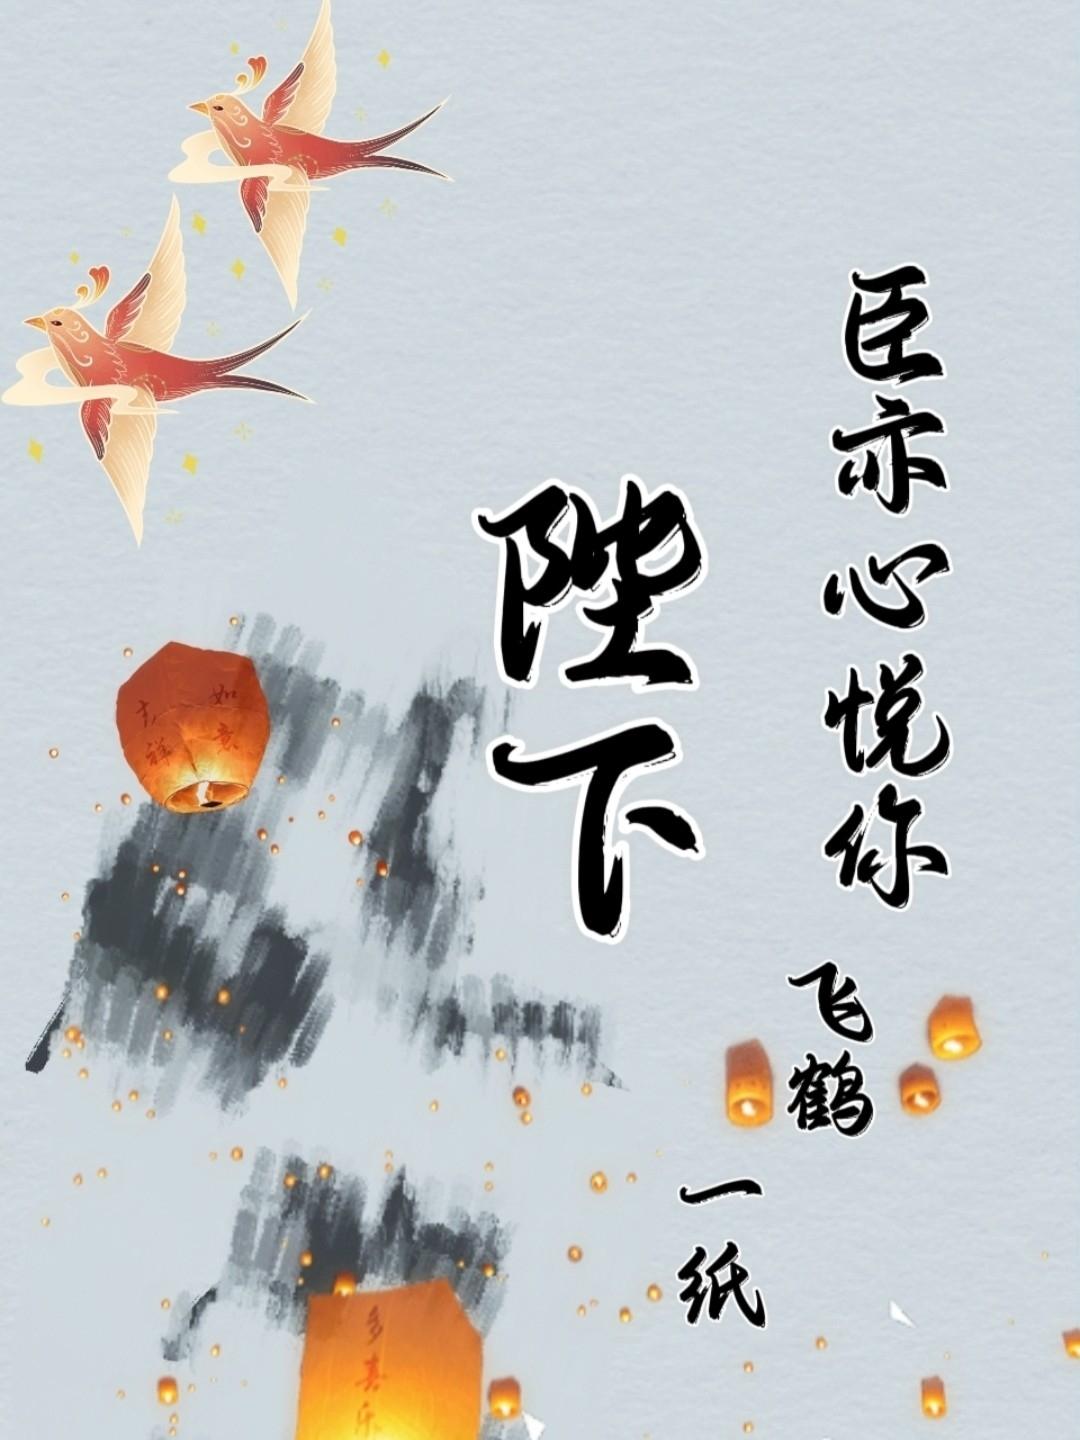 臣亦心悦你
陛下
飞鹤
一纸
如意
吉祥
多喜乐